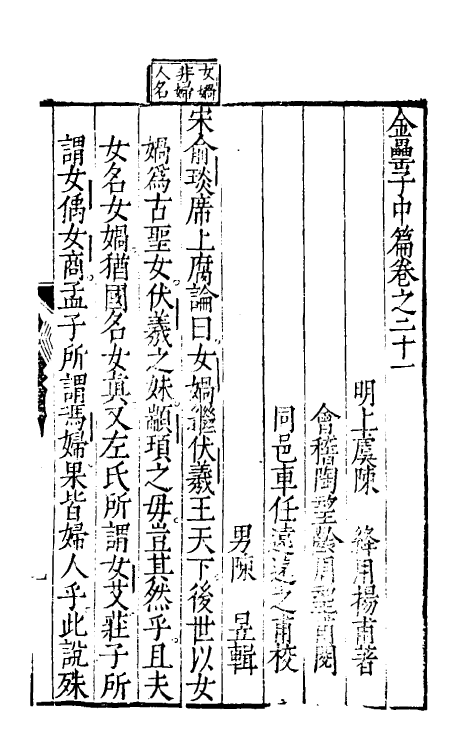 女媧
非婦
人名
金罍子中篇卷之二十一
明上虞陳　絳用揚甫著
會稽陶望齡周望甫閱
同邑車任遠遠之甫校
男陳　昱輯
宋俞琰席上腐論曰女媧繼伏羲王天下後世以女
媧爲古聖女伏羲之妹顓頊之母豈其然乎且夫
女名女媧猶國名女真又左氏所謂女艾莊子所
謂女偊女商孟子所謂馮婦果皆婦人乎此說殊